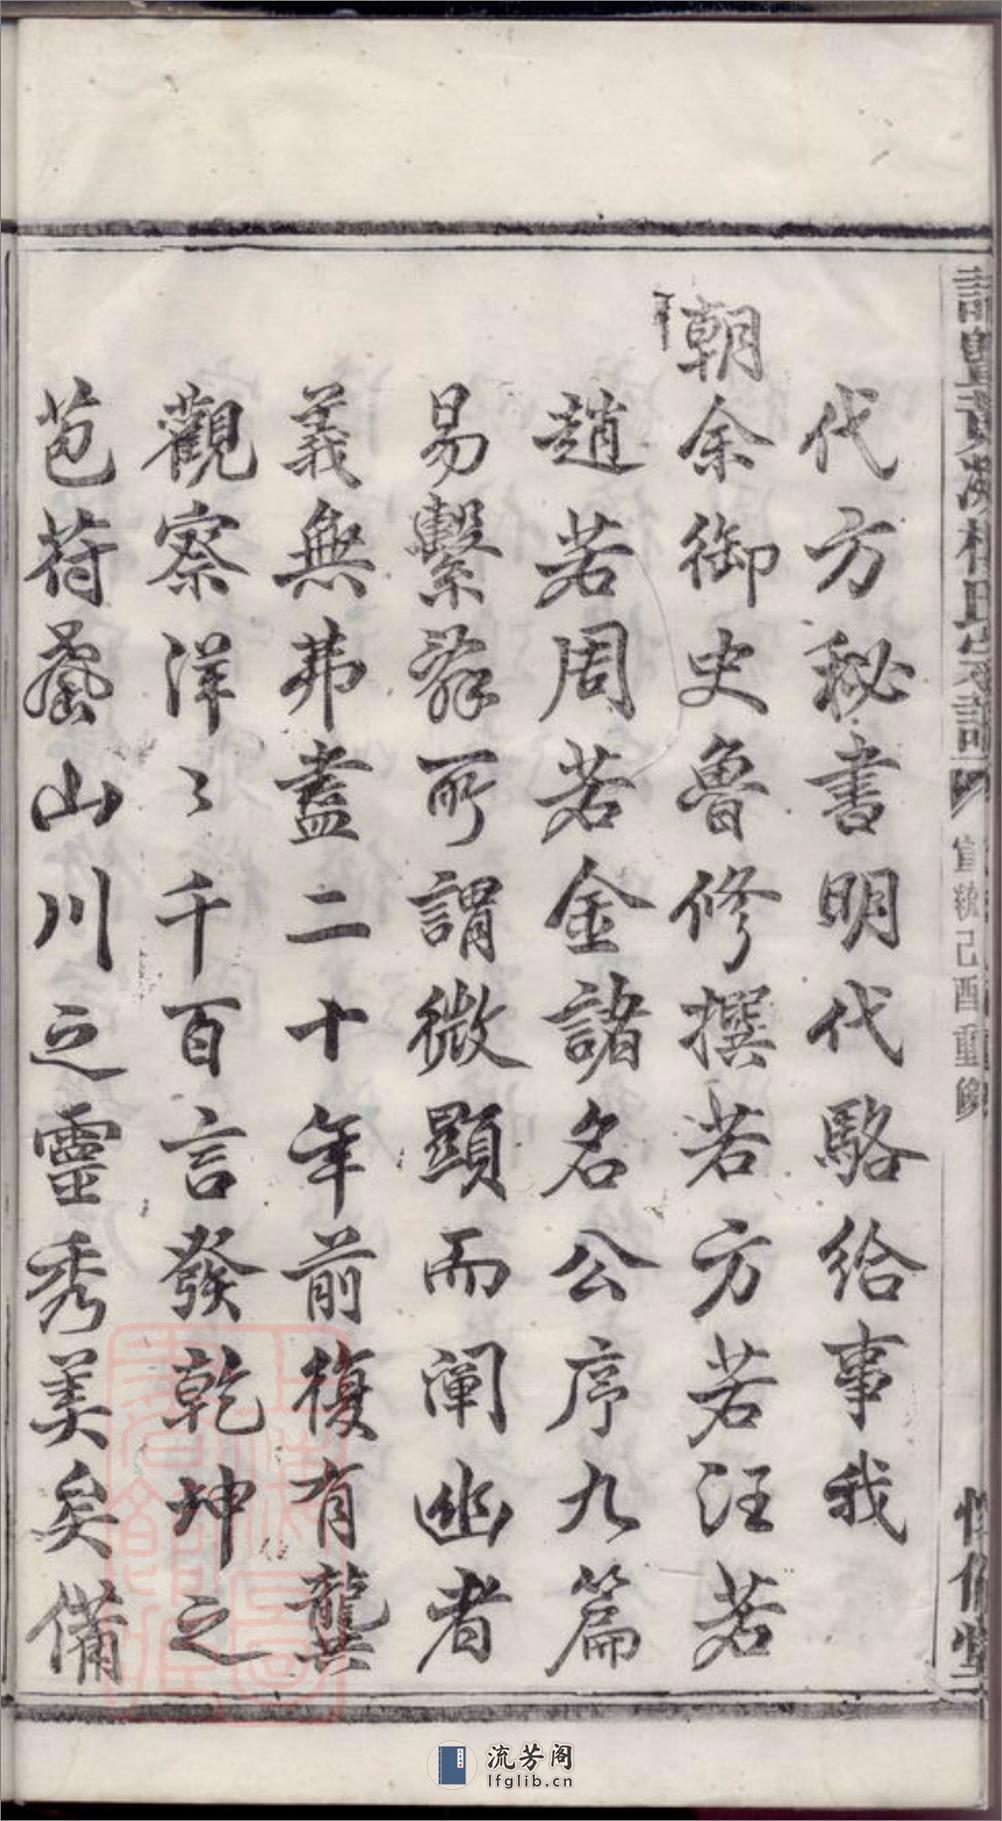 代方秘書明代駱給事我
朝余御史魯修撰若方若汪若
趙若周若金諸名公序九篇
易繫辭所謂微顯而闡幽者
義無弗盡二十年前復有龔
觀察洋〻千百言發乾坤之
苞符發山川之靈秀美矣備
宣統己酉重鐫
惇倫堂
流芳阁
lfglib.cn